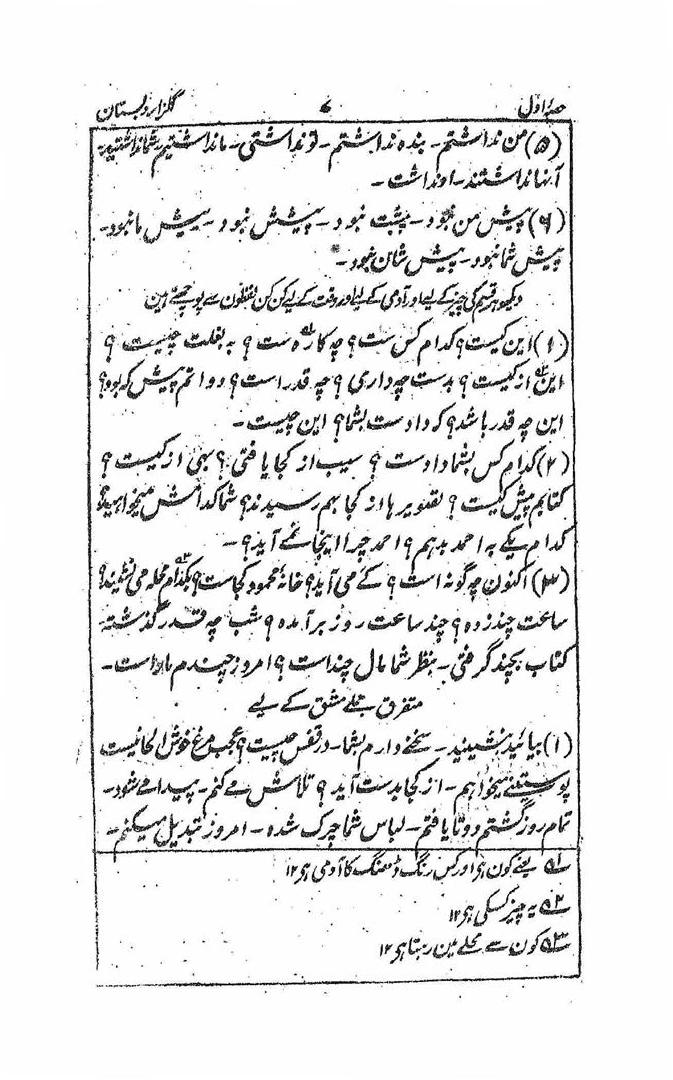 حصۂ اول ۶ گلزار دبستان
(۵) من نداشتم۔ بندہ نداشتم۔ تو نداشتی۔ ما نداشتیم۔ شما نداشتید۔
آنہا نداشتند۔ او نداشت۔
(۶) پیش من نبود۔ پیشت نبود۔ پیشش نبود۔ پیش ما نبود۔
پیش شما نبود۔ پیش شان نبود۔
دیکھو ہر قسم کی چیز کے لیے اور آدمی کے لیے اور وقت کے لیے کن کن لفظون سے پوچھتے ہین
(۱) این کیست؟ کدام کس ست؟ چہ کارہ ست؟ بہ بغلت چیست؟
این از کیست؟ بدست چہ داری؟ چہ قدر است؟ دواتم پیش کہ بود؟
این چہ قدر باشد؟ کہ دادست بشما؟ این چیست۔
(۲) کدام کس بشما دادست؟ سیب از کجا یافتی؟ بہی از کیست؟
کتابم پیش کیست؟ تصویر ہا از کجا بہم رسیدند؟ شما کدامش میخواہید؟
کدام یکے بہ احمد بدہم؟ احمد چرا اینجا نمے آید؟۔
(۳) اکنون چہ گونہ است؟ کے می آید؟ خانۂ محمود کجاست؟ بکدام محلہ می نشیند؟
ساعت چند زدہ؟ چند ساعت روز برآمدہ؟ شب چہ قدر گذشتہ۔
کتاب بچند گرفتی۔ بنظر شما مال چند است؟ امروز چندم ماہ است۔
متفرق جملے مشق کے لیے
(۱) بیائید بنشینید۔ سخنے دارم بشما۔ در قفس چیست؟ عجب مرغ خوش الحانیست
پوستینے میخواہم۔ از کجا بدست آید؟ تلاش مے کنم۔ پیدا مے شود۔
تمام روز گشتم دوتا یافتم۔ لباس شما چرک شدہ۔ امروز تبدیل میکنم۔
۱ یعنے کون ہی اور کس رنگ ڈھنگ کا آدمی ہی ۱۲
۲ یہ چیز کسکی ہی ۱۲
۳ کون سے محلے مین رہتا ہی ۱۲